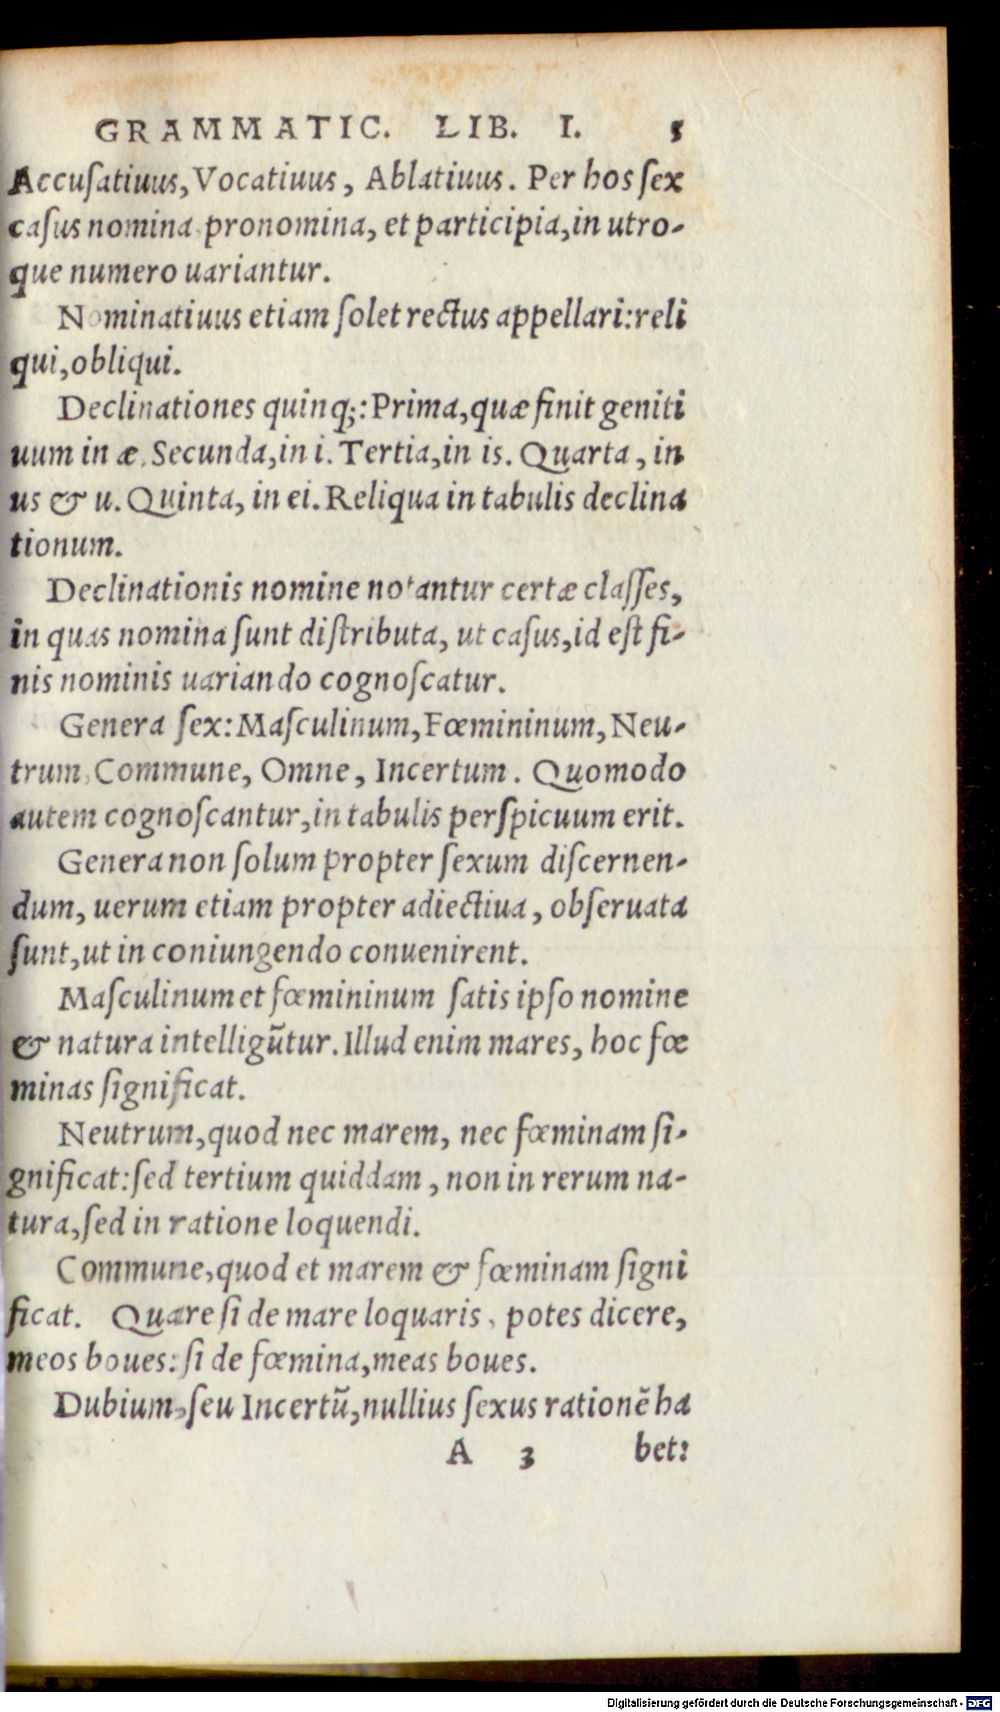 GRAMMATIC. LIB. I. 5
Accuſatiuus, Vocatiuus, Ablatiuus. Per hos ſex
caſus nomina pronomina, et participia, in utro-
que numero uariantur.
Nominatiuus etiam ſolet rectus appellari: reli
qui, obliqui.
Declinationes quinq;: Prima, quæ finit geniti
uum in æ. Secunda, in i. Tertia, in is. Quarta, in
us & u. Quinta, in ei. Reliqua in tabulis declina
tionum.
Declinationis nomine notantur certæ claſſes,
in quas nomina ſunt diſtributa, ut caſus, id eſt fi-
nis nominis uariando cognoſcatur.
Genera ſex: Maſculinum, Fœmininum, Neu-
trum, Commune, Omne, Incertum. Quomodo
autem cognoſcantur, in tabulis perſpicuum erit.
Genera non ſolum propter ſexum diſcernen-
dum, uerum etiam propter adiectiua, obſeruata
ſunt, ut in coniungendo conuenirent.
Maſculinum et fœmininum ſatis ipſo nomine
& natura intelligūtur. Illud enim mares, hoc fœ
minas ſignificat.
Neutrum, quod nec marem, nec fœminam ſi-
gnificat: ſed tertium quiddam, non in rerum na-
tura, ſed in ratione loquendi.
Commune, quod et marem & fœminam ſigni
ficat. Quare ſi de mare loquaris, potes dicere,
meos boues: ſi de fœmina, meas boues.
Dubium, ſeu Incertū, nullius ſexus rationē ha
A 3 bet:
Digitalisierung gefördert durch die Deutsche Forschungsgemeinschaft - DFG